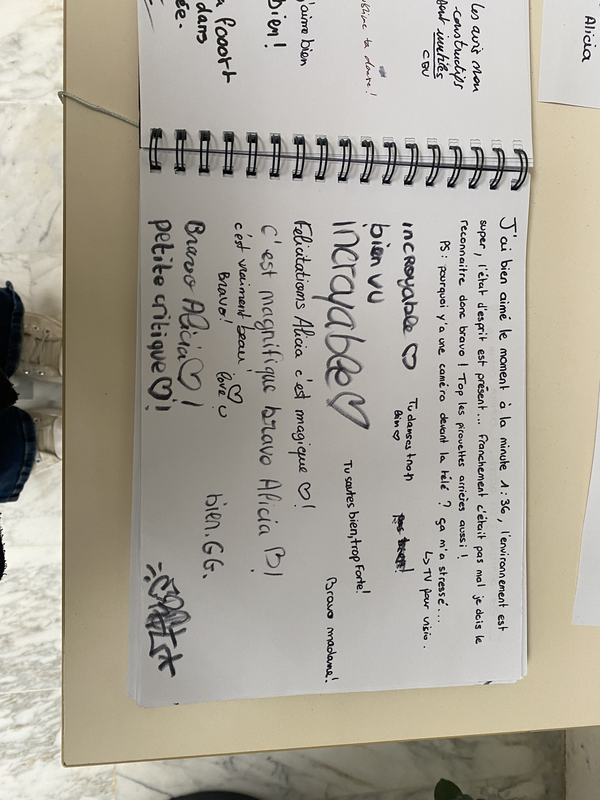 Alicia
les avis non
constructifs
sont inutiles
CDV
ta danse !
j'aime bien
bien !
dans
J'ai bien aimé le moment à la minute 1:36, l'environnement est
super, l'état d'esprit est présent... Franchement c'était pas mal je dois le
reconnaitre donc bravo ! Top les pirouettes arrières aussi !
PS: pourquoi y'a une caméra devant la télé ? ça m'a stressé...
↳ TV pour visio.
incroyable ♡
Tu danses trop
bien ♡
bien vu
incroyable ♡
Tu sautes bien, trop forte!
Bravo madame!
Félicitations Alicia c'est magique ♡!
C'est magnifique bravo Alicia B!
c'est vraiment beau!
Bravo!
love
bien. GG.
Bravo Alicia ♡!
petite critique ♡!